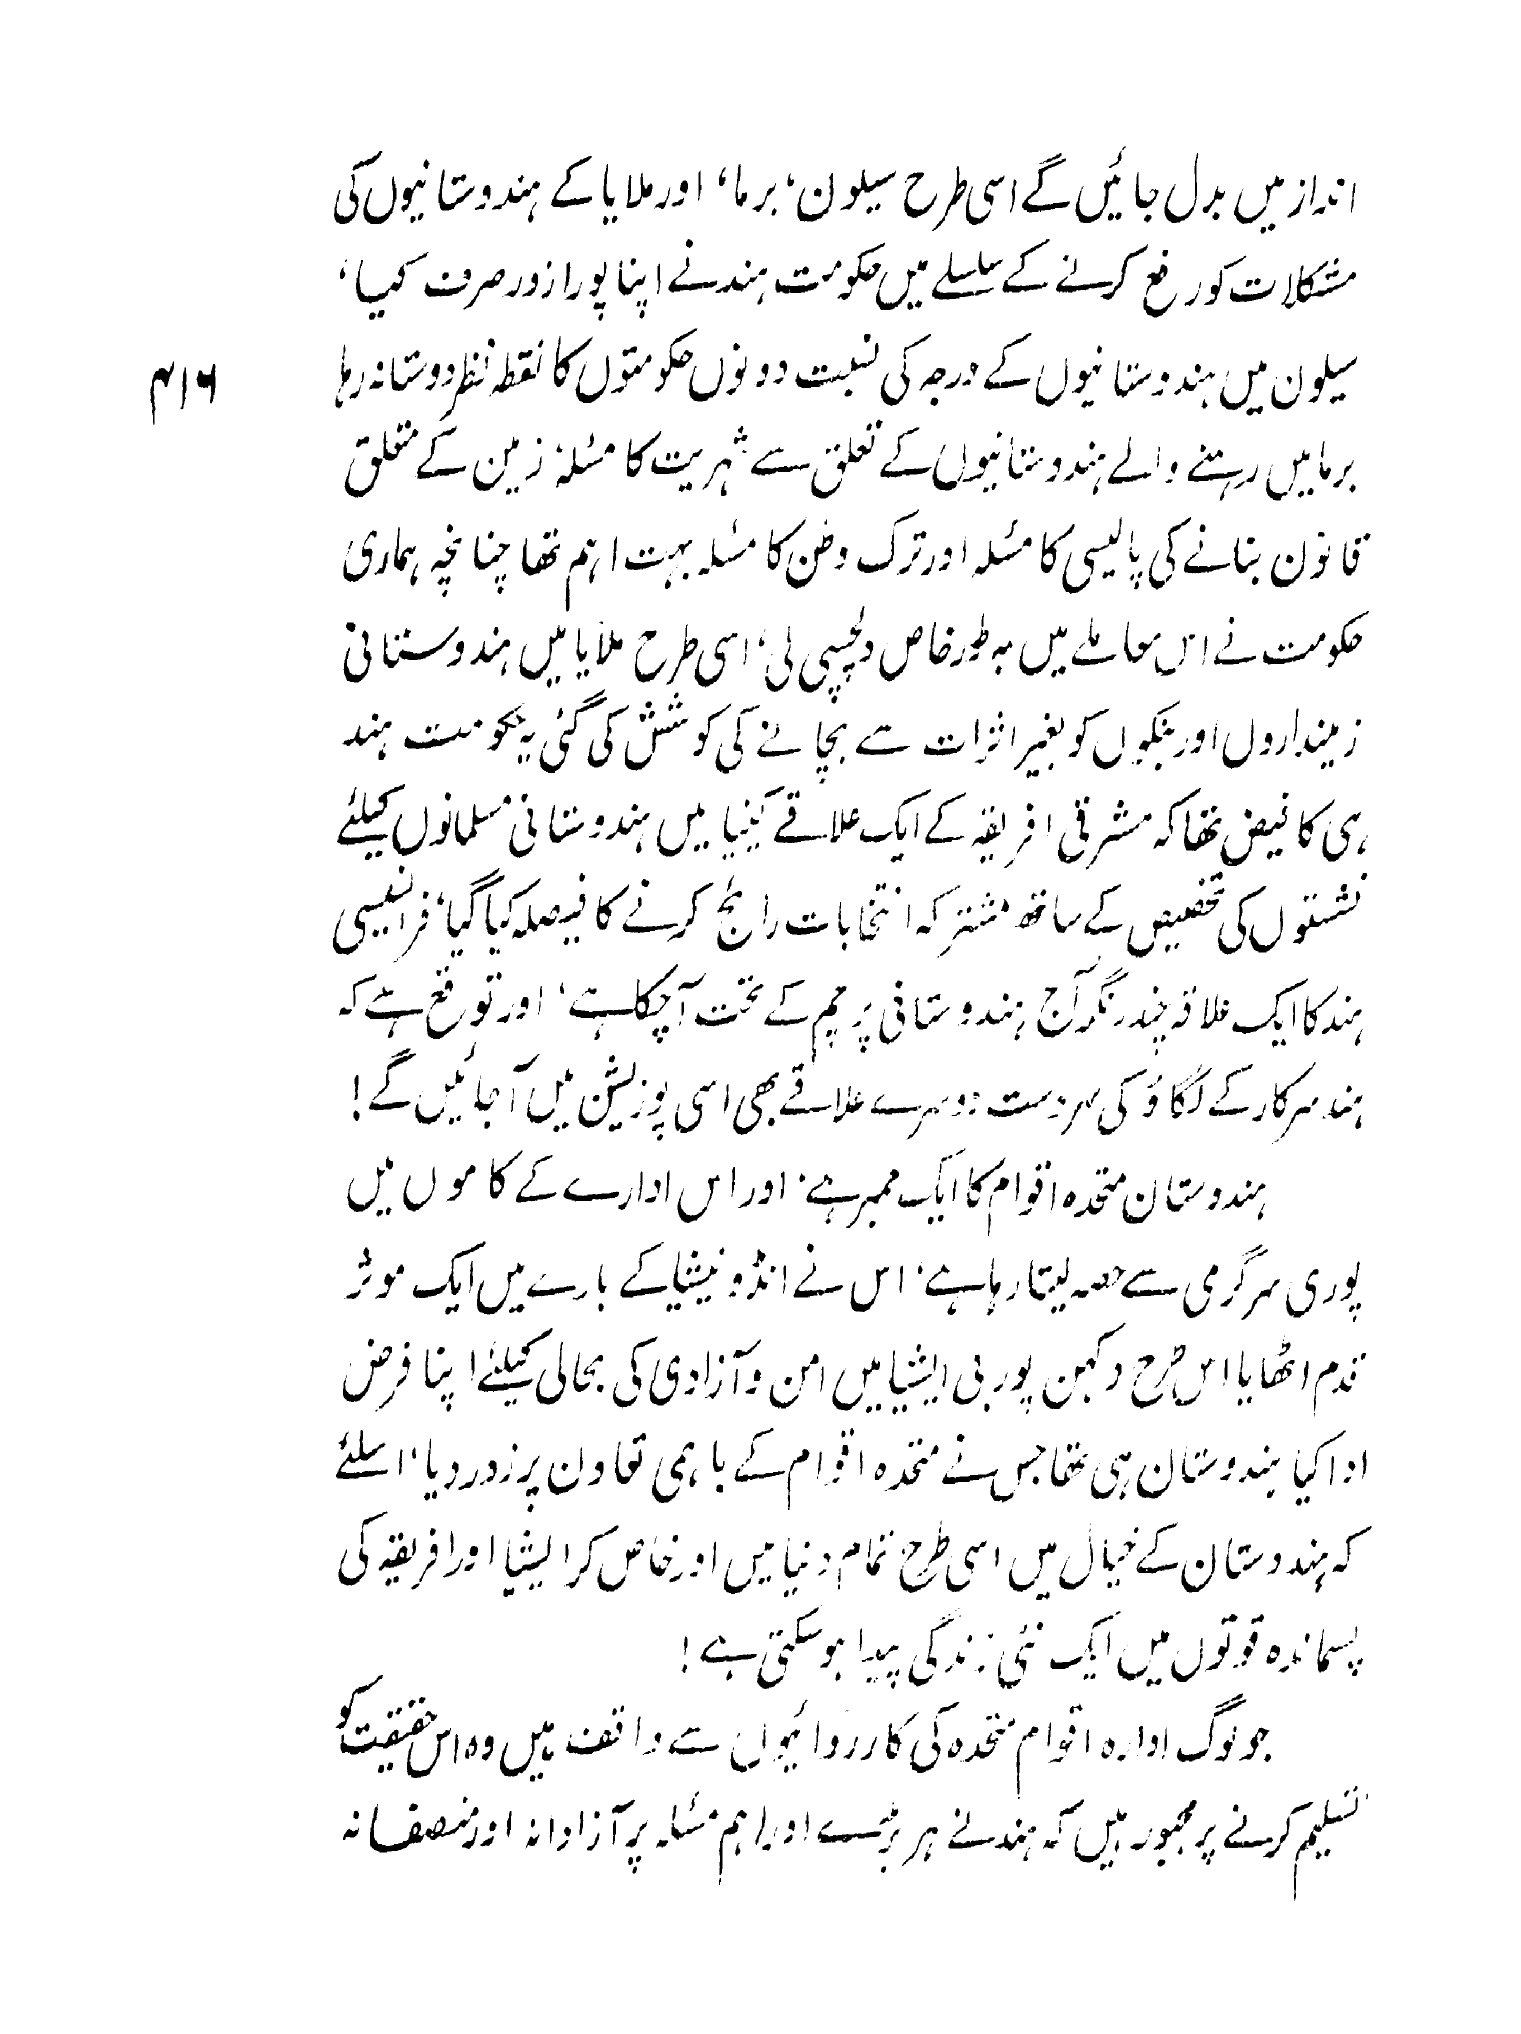 انداز میں بدل جائیں گے اسی طرح سیلون، برما، اور ملایا کے ہندوستانیوں کی
مشکلات کو رفع کرنے کے سلسلے میں حکومت ہند نے اپنا پورا زور صرف کیا،
سیلون میں ہندوستانیوں کے درجہ کی نسبت دونوں حکومتوں کا نقطہ نظر دوستانہ رہا
۴۱۶
برما میں رہنے والے ہندوستانیوں کے تعلق سے شہریت کا مسئلہ زمین کے متعلق
قانون بنانے کی پالیسی کا مسئلہ اور ترک وطن کا مسئلہ بہت اہم تھا چنانچہ ہماری
حکومت نے اس معاملے میں بہ طور خاص دلچسپی لی، اسی طرح ملایا میں ہندوستانی
زمینداروں اور بنکوں کو بغیر اثرات سے بچانے کی کوشش کی گئی یہ حکومت ہند
ہی کا فیض تھا کہ مشرقی افریقہ کے ایک علاقے کینیا میں ہندوستانی مسلمانوں کیلئے
نشستوں کی تخصیص کے ساتھ مشترکہ انتخابات رائج کرنے کا فیصلہ کیا گیا، فرانسیسی
ہند کا ایک علاقہ چندر نگر آج ہندوستانی پرچم کے تحت آچکا ہے، اور توقع ہے کہ
ہند سرکار کے لگاؤ کی سردست دوسرے علاقے بھی اسی پوزیشن میں آجائیں گے!
ہندوستان متحدہ اقوام کا ایک ممبر ہے، اور اس ادارے کے کاموں میں
پوری سرگرمی سے حصہ لیتا رہا ہے، اس نے انڈونیشیا کے بارے میں ایک موثر
قدم اٹھایا اس طرح دکھن پوربی ایشیا میں امن و آزادی کی بحالی کیلئے اپنا فرض
ادا کیا ہندوستان ہی تھا جس نے متحدہ اقوام کے باہمی تعاون پر زور دیا، اسلئے
کہ ہندوستان کے خیال میں اسی طرح تمام دنیا میں اور خاص کر ایشیا اور افریقہ کی
پسماندہ قوتوں میں ایک نئی زندگی پیدا ہو سکتی ہے!
جو لوگ ادارہ اقوام متحدہ کی کارروائیوں سے واقف ہیں وہ اس حقیقت کو
تسلیم کرنے پر مجبور ہیں کہ ہند نے ہر بڑے اور اہم مسئلہ پر آزادانہ اور منصفانہ